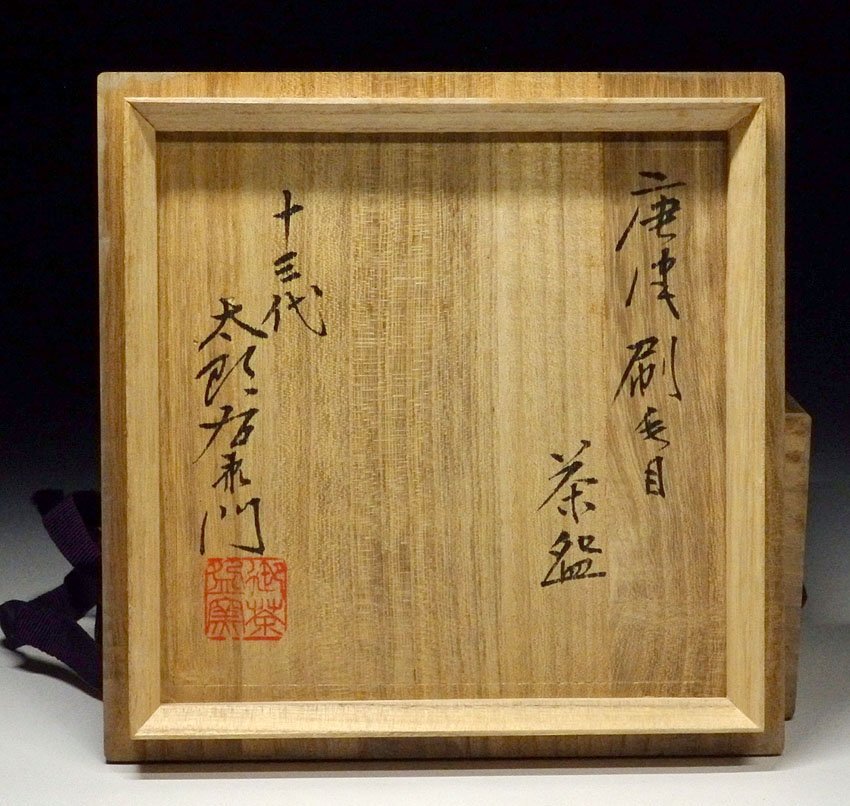 唐津刷毛目
茶盌
十三代
太郎右衛門
御茶
盌窯